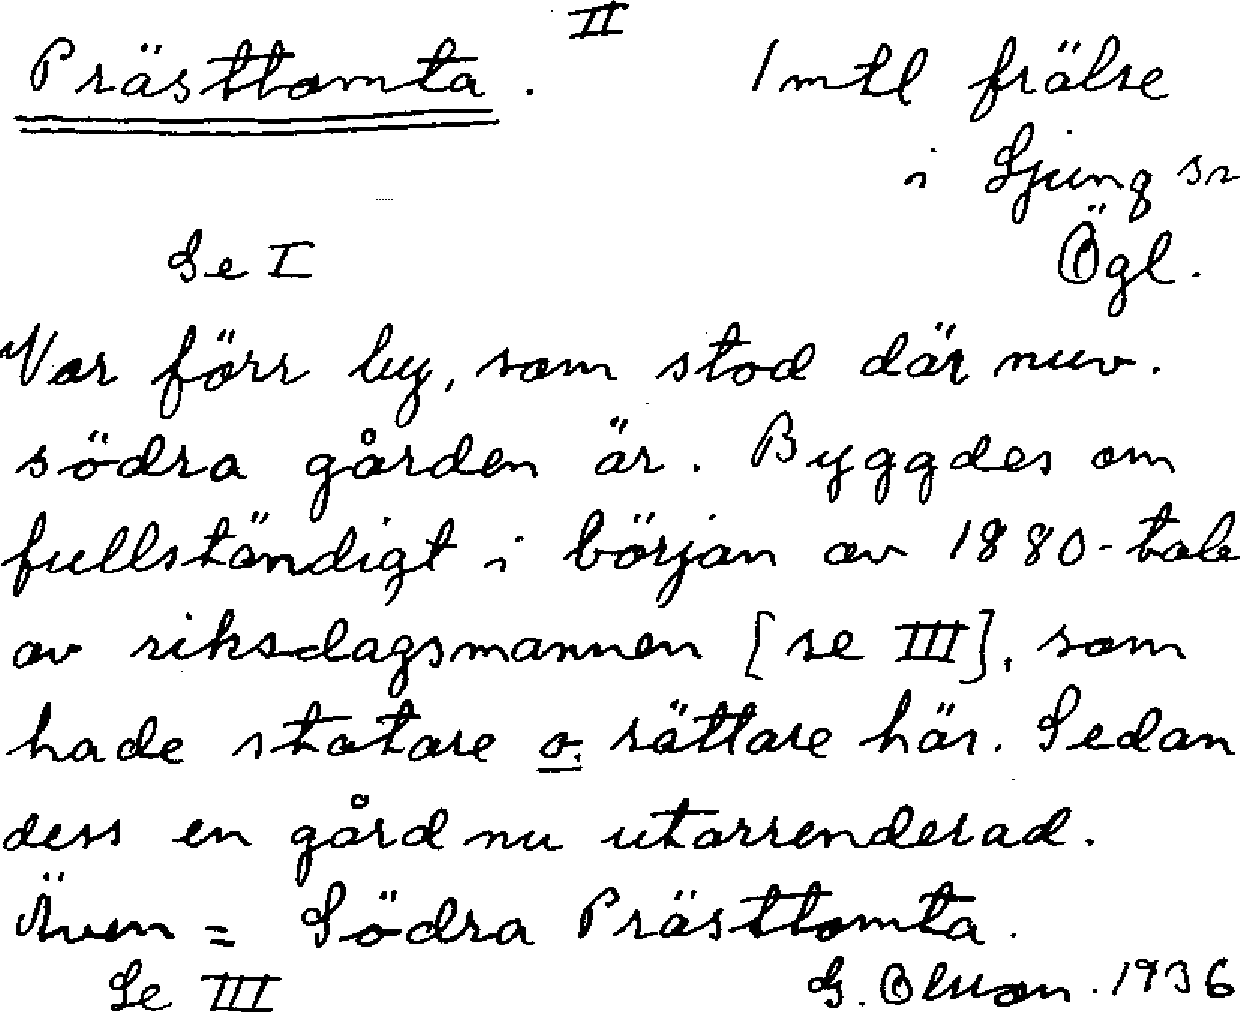 II
Prästtomta. 1 mtl frälse
i Ljung sn
Ögl.
Se I
Var förr by, som stod där nuv.
södra gården är. Byggdes om
fullständigt i början av 1880-tale
av riksdagsmannen [se III], som
hade statare o. rättare här. Sedan
dess en gård nu utarrenderad.
Även = Södra Prästtomta.
Se III G. Olsson. 1936